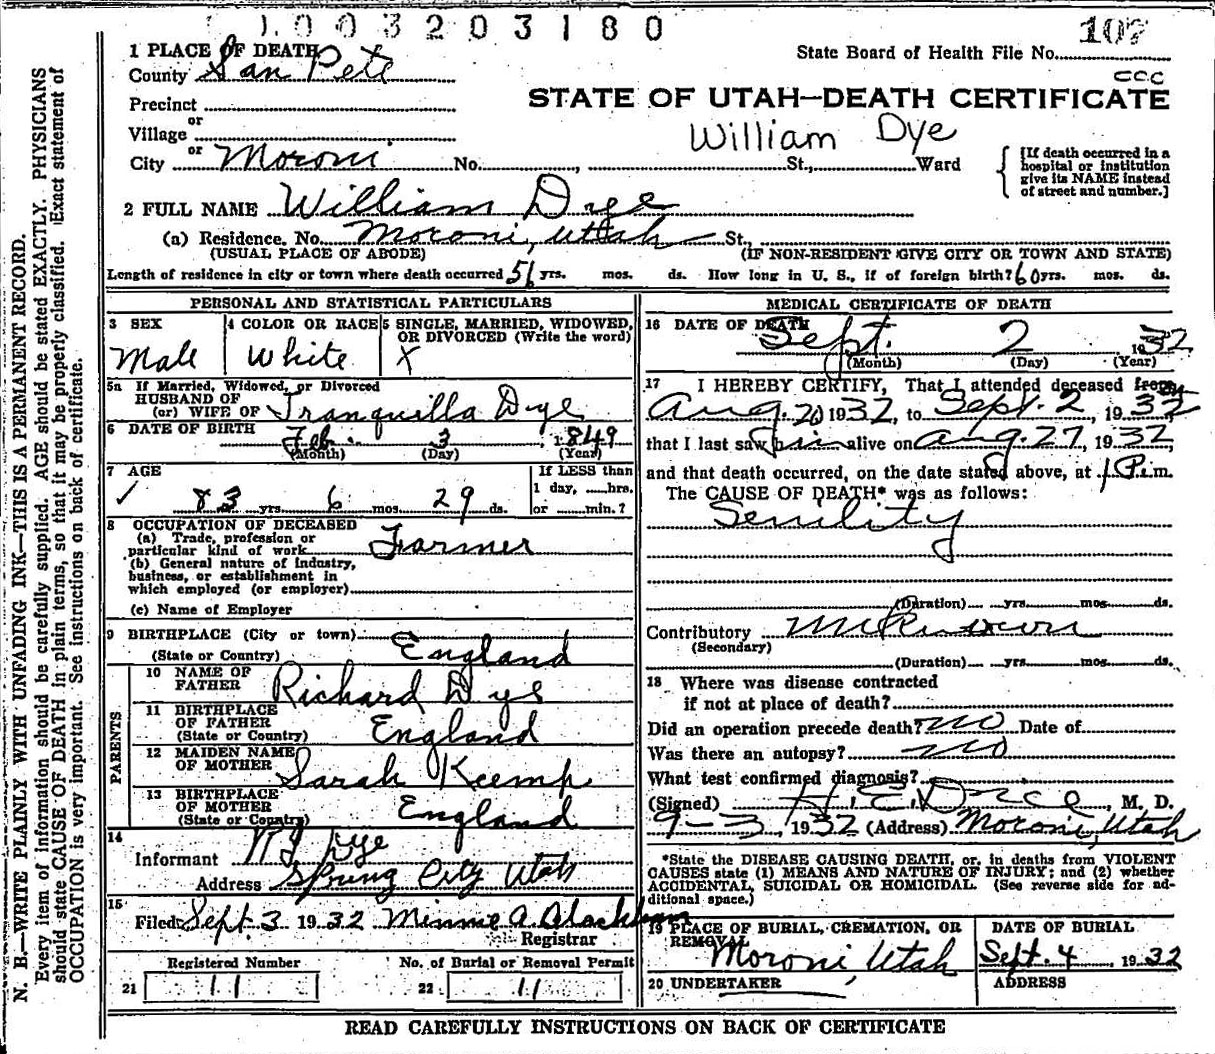 1003203180
107
State Board of Health File No.
ccc
1 PLACE OF DEATH
County San Pete
Precinct
or
Village
or
City Moroni No. St., Ward
STATE OF UTAH—DEATH CERTIFICATE
William Dye
[If death occurred in a hospital or institution give its NAME instead of street and number.]
2 FULL NAME William Dye
(a) Residence. No. Moroni, Utah St.,
(USUAL PLACE OF ABODE) (IF NON-RESIDENT GIVE CITY OR TOWN AND STATE)
Length of residence in city or town where death occurred 56 yrs. mos. ds. How long in U. S., if of foreign birth? 60 yrs. mos. ds.
PERSONAL AND STATISTICAL PARTICULARS
3 SEX
Male
4 COLOR OR RACE
White
5 SINGLE, MARRIED, WIDOWED, OR DIVORCED (Write the word)
X
5a If Married, Widowed, or Divorced
HUSBAND OF
(or) WIFE OF Tranquilla Dye
6 DATE OF BIRTH Feb. 3 1849
(Month) (Day) (Year)
7 AGE
✓ 83 yrs. 6 mos. 29 ds.
If LESS than
1 day, hrs.
or min.?
8 OCCUPATION OF DECEASED
(a) Trade, profession or
particular kind of work Farmer
(b) General nature of industry,
business, or establishment in
which employed (or employer)
(c) Name of Employer
9 BIRTHPLACE (City or town)
(State or Country) England
PARENTS
10 NAME OF
FATHER Richard Dye
11 BIRTHPLACE
OF FATHER
(State or Country) England
12 MAIDEN NAME
OF MOTHER Sarah Keemp
13 BIRTHPLACE
OF MOTHER
(State or Country) England
14
Informant Dye
Address Spring City Utah
15
Filed Sept. 3 1932 Minnie A.
Registrar
Registered Number No. of Burial or Removal Permit
21 11 22 11
MEDICAL CERTIFICATE OF DEATH
16 DATE OF DEATH
Sept. 2 1932
(Month) (Day) (Year)
17 I HEREBY CERTIFY, That I attended deceased from
Aug. 20 1932, to Sept. 2, 1932,
that I last saw him alive on Aug. 27, 1932,
and that death occurred, on the date stated above, at 1 P.m.
The CAUSE OF DEATH* was as follows:
Senility
(Duration) yrs. mos. ds.
Contributory
(Secondary)
(Duration) yrs. mos. ds.
18 Where was disease contracted
if not at place of death?
Did an operation precede death? no Date of
Was there an autopsy? no
What test confirmed diagnosis?
(Signed) H. E. , M. D.
9-3, 1932 (Address) Moroni, Utah
*State the DISEASE CAUSING DEATH, or, in deaths from VIOLENT
CAUSES state (1) MEANS AND NATURE OF INJURY; and (2) whether
ACCIDENTAL, SUICIDAL OR HOMICIDAL. (See reverse side for ad-
ditional space.)
19 PLACE OF BURIAL, CREMATION, OR
REMOVAL
Moroni, Utah
DATE OF BURIAL
Sept. 4, 1932
20 UNDERTAKER ADDRESS
READ CAREFULLY INSTRUCTIONS ON BACK OF CERTIFICATE
N. B.—WRITE PLAINLY WITH UNFADING INK—THIS IS A PERMANENT RECORD.
Every item of information should be carefully supplied. AGE should be stated EXACTLY. PHYSICIANS
should state CAUSE OF DEATH in plain terms, so that it may be properly classified. Exact statement of
OCCUPATION is very important. See instructions on back of certificate.